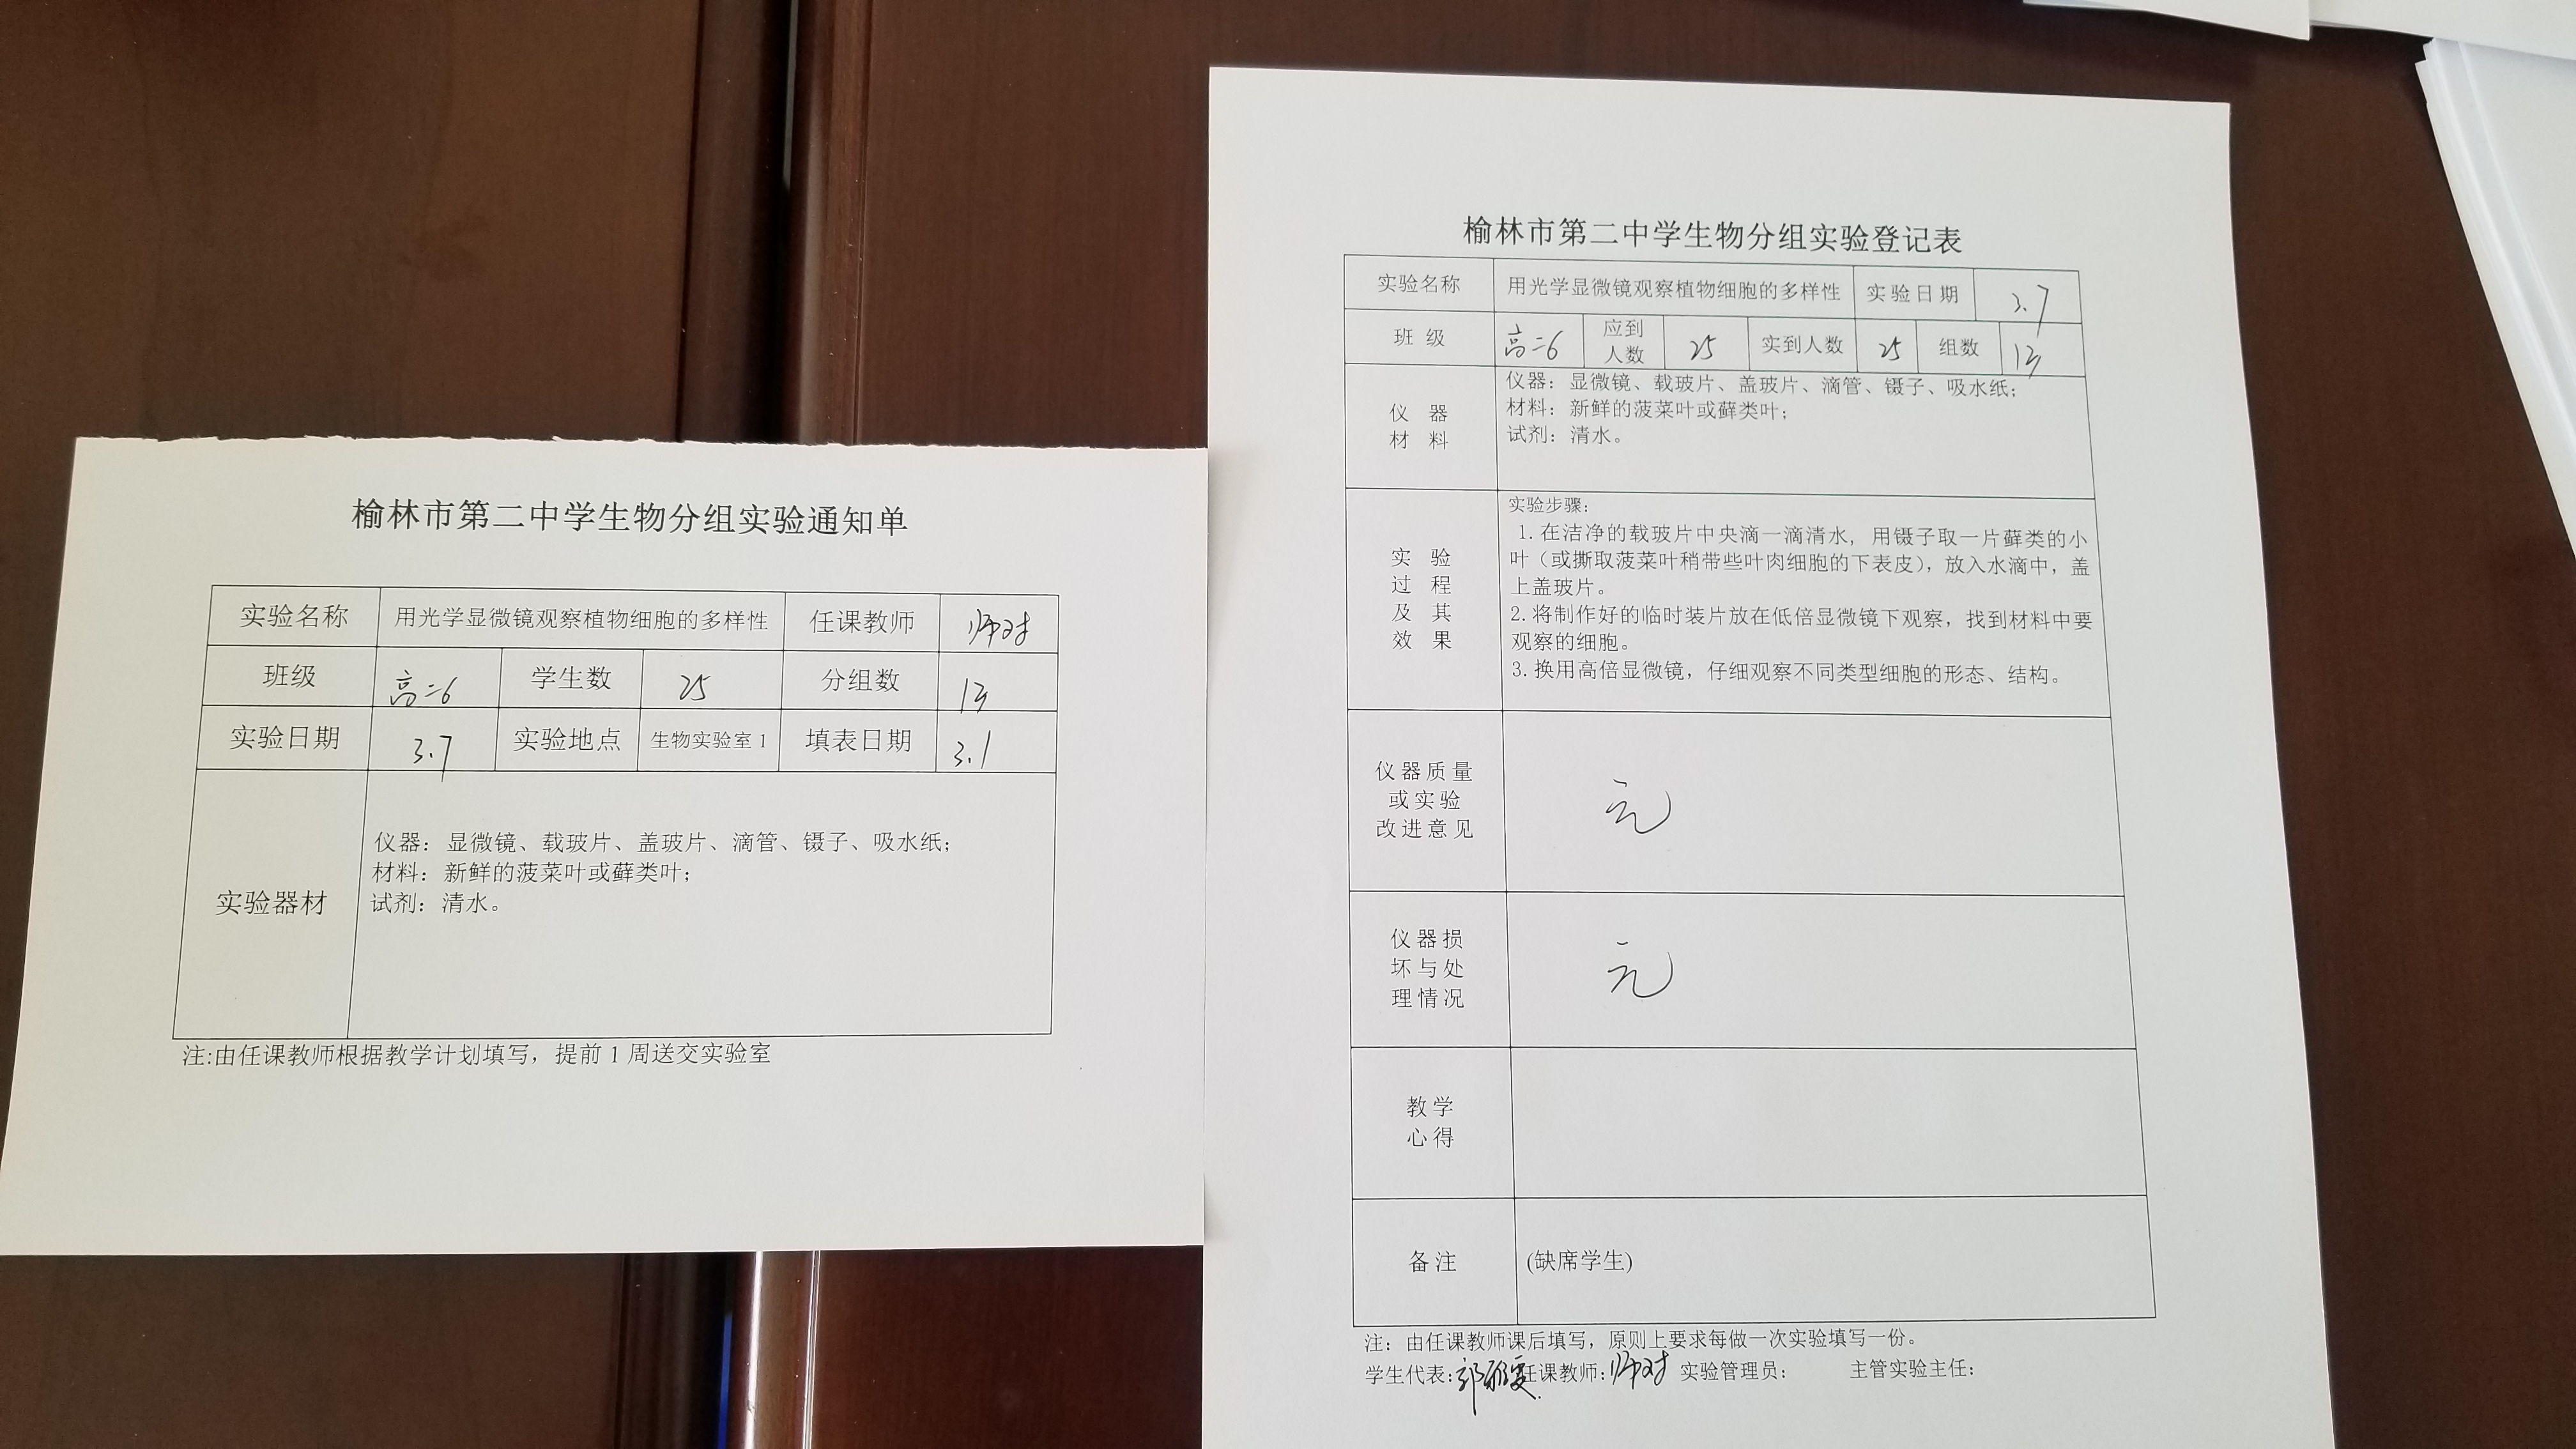 榆林市第二中学生物分组实验通知单
实验名称 用光学显微镜观察植物细胞的多样性 任课教师
班级 高二6 学生数 25 分组数 13
实验日期 3.7 实验地点 生物实验室1 填表日期 3.1
实验器材
仪器：显微镜、载玻片、盖玻片、滴管、镊子、吸水纸；
材料：新鲜的菠菜叶或藓类叶；
试剂：清水。
注:由任课教师根据教学计划填写，提前1周送交实验室
榆林市第二中学生物分组实验登记表
实验名称 用光学显微镜观察植物细胞的多样性 实验日期 3.7
班级 高二6 应到人数 25 实到人数 25 组数 13
仪器
材料
仪器：显微镜、载玻片、盖玻片、滴管、镊子、吸水纸；
材料：新鲜的菠菜叶或藓类叶；
试剂：清水。
实验
过程
及其
效果
实验步骤：
1.在洁净的载玻片中央滴一滴清水，用镊子取一片藓类的小
叶（或撕取菠菜叶稍带些叶肉细胞的下表皮），放入水滴中，盖
上盖玻片。
2.将制作好的临时装片放在低倍显微镜下观察，找到材料中要
观察的细胞。
3.换用高倍显微镜，仔细观察不同类型细胞的形态、结构。
仪器质量
或实验
改进意见
无
仪器损
坏与处
理情况
无
教学
心得
备注 (缺席学生)
注：由任课教师课后填写，原则上要求每做一次实验填写一份。
学生代表: 任课教师: 实验管理员: 主管实验主任: